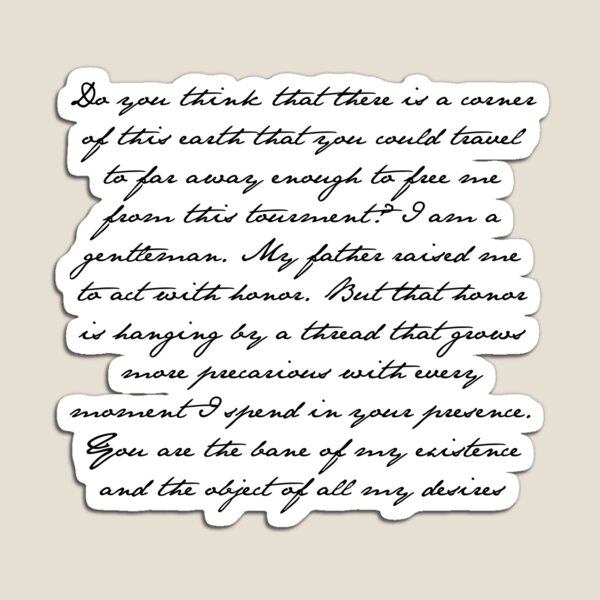 Do you think that there is a corner
of this earth that you could travel
to far away enough to free me
from this tourment? I am a
gentleman. My father raised me
to act with honor. But that honor
is hanging by a thread that grows
more precarious with every
moment I spend in your presence.
You are the bane of my existence
and the object of all my desires